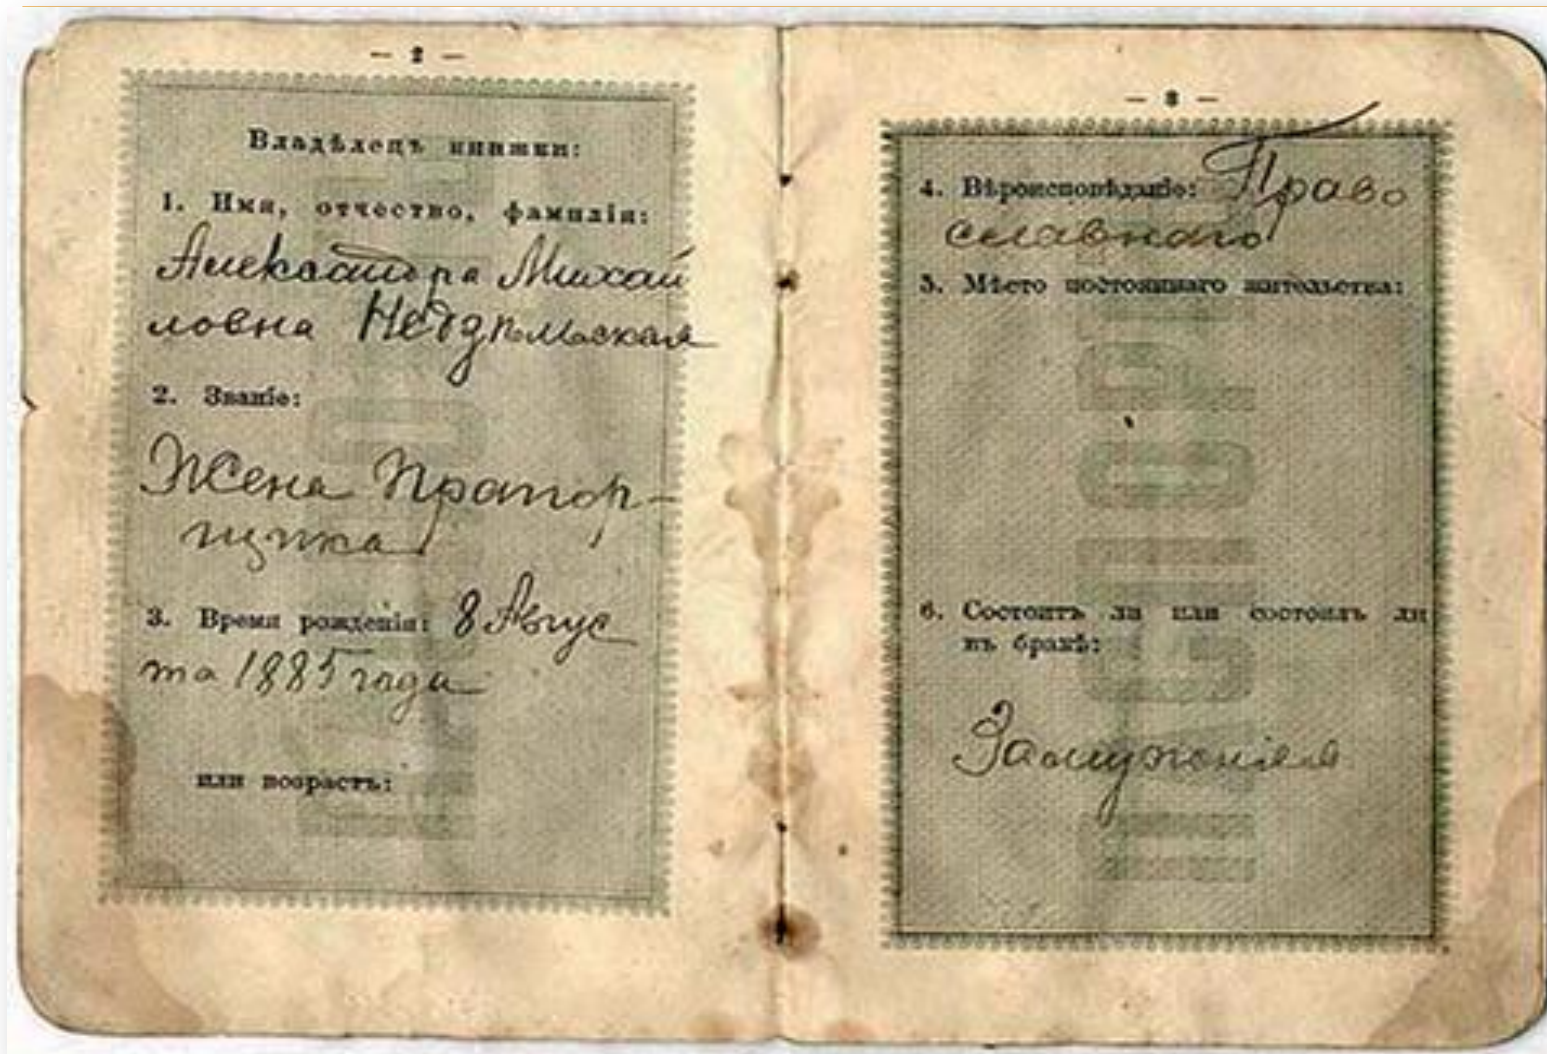 — 2 —
Владѣлецъ книжки:
1. Имя, отчество, фамилія:
Александра Михай
ловна
2. Званіе:
Жена Прапор-
щика
3. Время рожденія: 8 Авгус
та 1885 года
или возрастъ:
— 3 —
4. Вѣроисповѣданіе: Право
славнаго
5. Мѣсто постояннаго жительства:
6. Состоитъ ли или состоялъ ли
въ бракѣ:
Замужняя
ПАСПОРТ